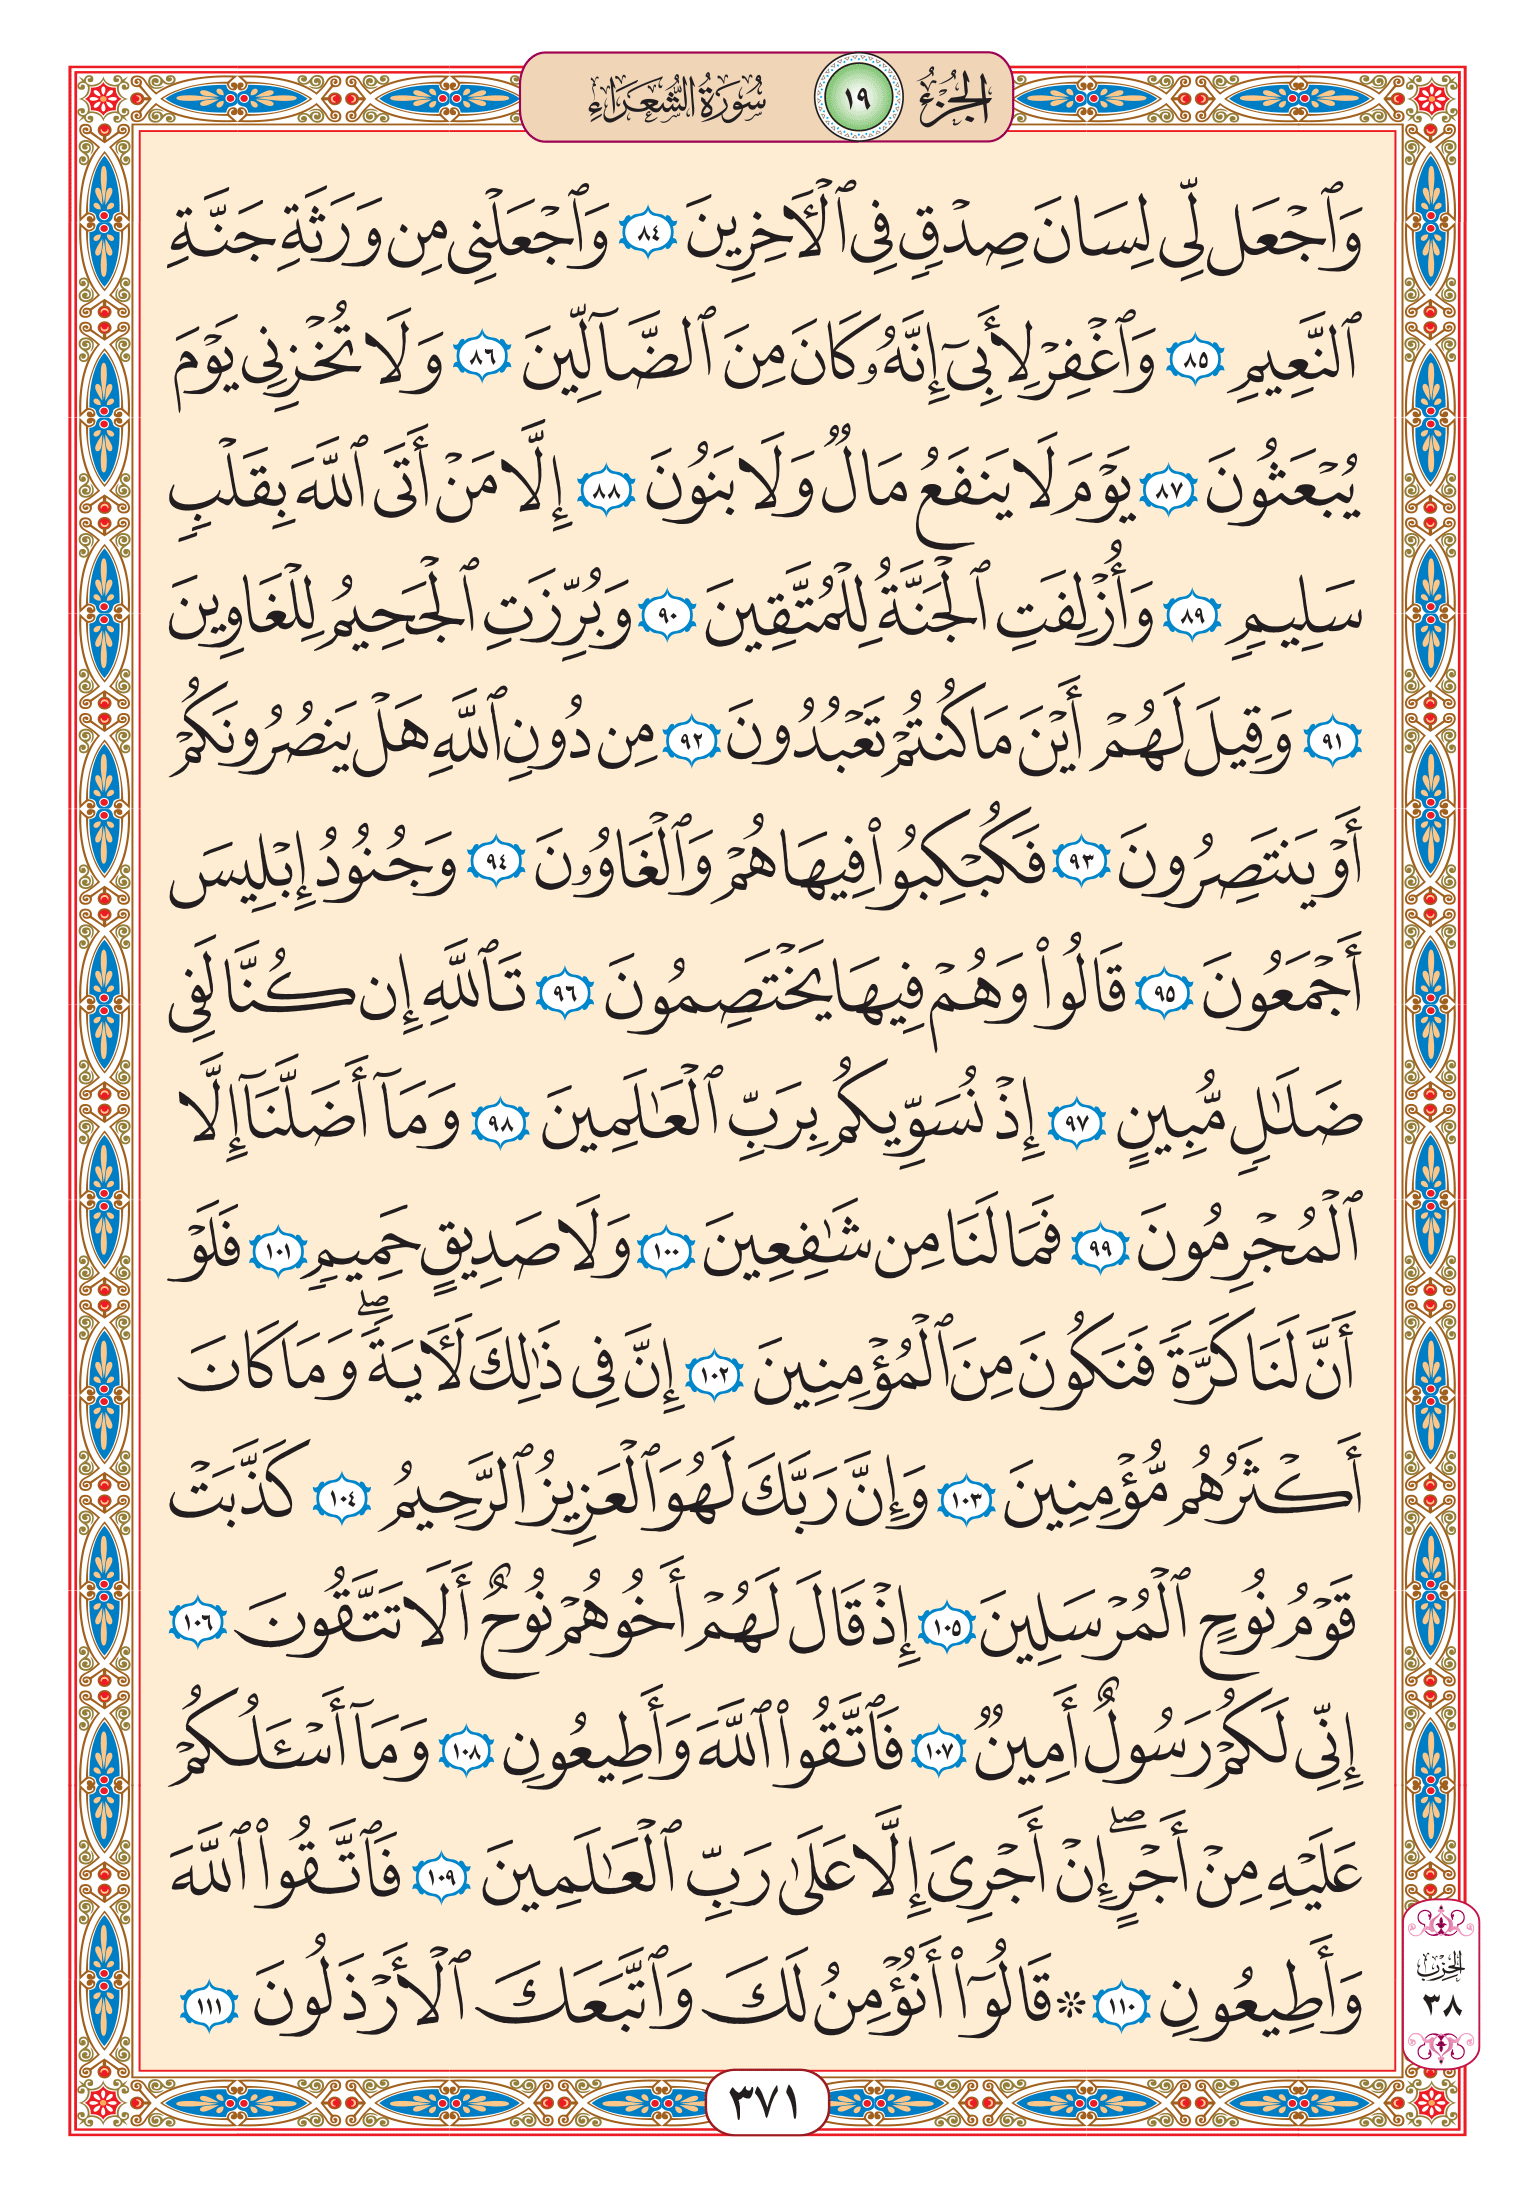 الجزء ١٩ سورة الشعراء
وَٱجۡعَل لِّي لِسَانَ صِدۡقٖ فِي ٱلۡأٓخِرِينَ ٨٤ وَٱجۡعَلۡنِي مِن وَرَثَةِ جَنَّةِ
ٱلنَّعِيمِ ٨٥ وَٱغۡفِرۡ لِأَبِيٓ إِنَّهُۥ كَانَ مِنَ ٱلضَّآلِّينَ ٨٦ وَلَا تُخۡزِنِي يَوۡمَ
يُبۡعَثُونَ ٨٧ يَوۡمَ لَا يَنفَعُ مَالٞ وَلَا بَنُونَ ٨٨ إِلَّا مَنۡ أَتَى ٱللَّهَ بِقَلۡبٖ
سَلِيمٖ ٨٩ وَأُزۡلِفَتِ ٱلۡجَنَّةُ لِلۡمُتَّقِينَ ٩٠ وَبُرِّزَتِ ٱلۡجَحِيمُ لِلۡغَاوِينَ
٩١ وَقِيلَ لَهُمۡ أَيۡنَ مَا كُنتُمۡ تَعۡبُدُونَ ٩٢ مِن دُونِ ٱللَّهِ هَلۡ يَنصُرُونَكُمۡ
أَوۡ يَنتَصِرُونَ ٩٣ فَكُبۡكِبُواْ فِيهَا هُمۡ وَٱلۡغَاوُۥنَ ٩٤ وَجُنُودُ إِبۡلِيسَ
أَجۡمَعُونَ ٩٥ قَالُواْ وَهُمۡ فِيهَا يَخۡتَصِمُونَ ٩٦ تَٱللَّهِ إِن كُنَّا لَفِي
ضَلَٰلٖ مُّبِينٍ ٩٧ إِذۡ نُسَوِّيكُم بِرَبِّ ٱلۡعَٰلَمِينَ ٩٨ وَمَآ أَضَلَّنَآ إِلَّا
ٱلۡمُجۡرِمُونَ ٩٩ فَمَا لَنَا مِن شَٰفِعِينَ ١٠٠ وَلَا صَدِيقٍ حَمِيمٖ ١٠١ فَلَوۡ
أَنَّ لَنَا كَرَّةٗ فَنَكُونَ مِنَ ٱلۡمُؤۡمِنِينَ ١٠٢ إِنَّ فِي ذَٰلِكَ لَأٓيَةٗۖ وَمَا كَانَ
أَكۡثَرُهُم مُّؤۡمِنِينَ ١٠٣ وَإِنَّ رَبَّكَ لَهُوَ ٱلۡعَزِيزُ ٱلرَّحِيمُ ١٠٤ كَذَّبَتۡ
قَوۡمُ نُوحٍ ٱلۡمُرۡسَلِينَ ١٠٥ إِذۡ قَالَ لَهُمۡ أَخُوهُمۡ نُوحٌ أَلَا تَتَّقُونَ ١٠٦
إِنِّي لَكُمۡ رَسُولٌ أَمِينٞ ١٠٧ فَٱتَّقُواْ ٱللَّهَ وَأَطِيعُونِ ١٠٨ وَمَآ أَسۡـَٔلُكُمۡ
عَلَيۡهِ مِنۡ أَجۡرٍۖ إِنۡ أَجۡرِيَ إِلَّا عَلَىٰ رَبِّ ٱلۡعَٰلَمِينَ ١٠٩ فَٱتَّقُواْ ٱللَّهَ
وَأَطِيعُونِ ١١٠ ۞ قَالُوٓاْ أَنُؤۡمِنُ لَكَ وَٱتَّبَعَكَ ٱلۡأَرۡذَلُونَ ١١١
الحزب
٣٨
٣٧١